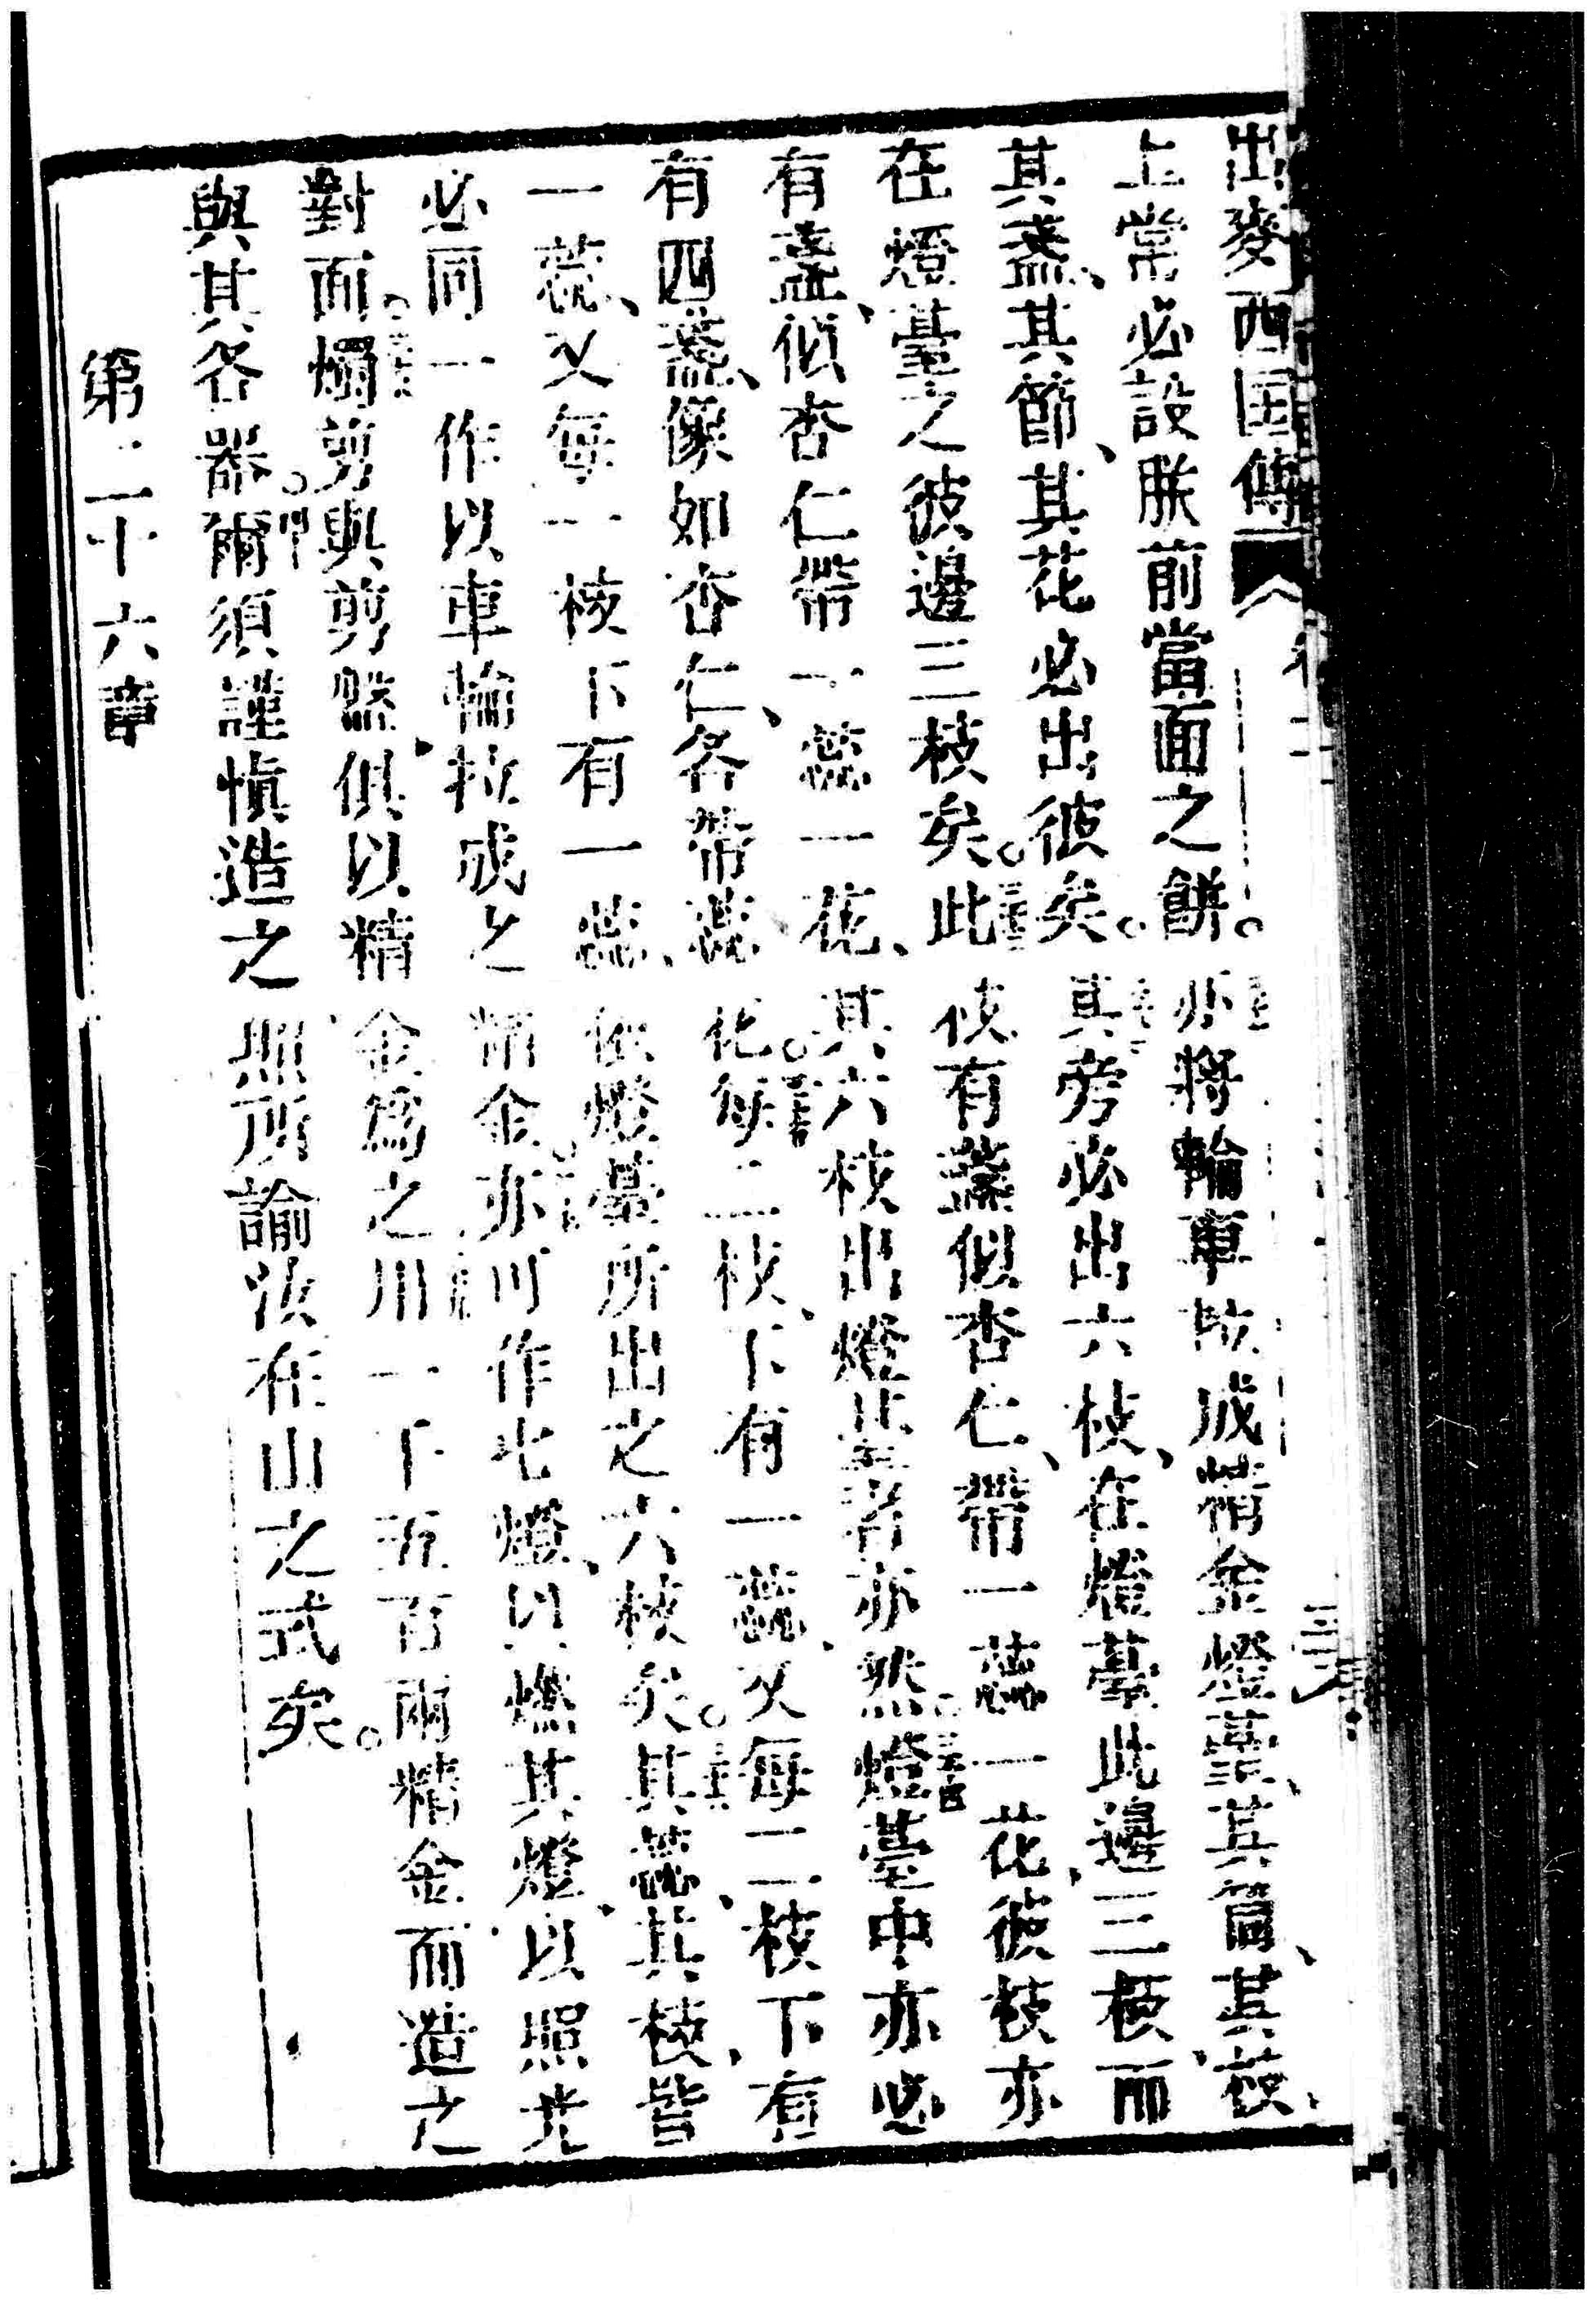 出麥西國傳
上常必設朕前當面之餅。亦將輪車㧞成精金燈臺、其筒、其莪、
其盞、其節、其花必出彼矣。其旁必出六枝、在燈臺此邊三枝、而
在燈臺之彼邊三枝矣。此枝有盞似杏仁、帶一蕊一花、彼枝亦
有盞、似杏仁帶一蕊一花、其六枝出燈臺者亦然。燈臺中亦必
有四盞、像如杏仁、各帶蕊花。每二枝、下有一蕊、又每二枝下有
一蕊、又每二枝下有一蕊、依燈臺所出之六枝矣。其蕊、其枝、皆
必同一作以車輪拉成之精金。亦可作七燈、以燃其燈、以照光
對面。燭剪與剪盤、俱以精金爲之用一千五百兩精金而造之
與其各器。爾須謹愼造之照所諭汝在山之式矣。
第二十六章